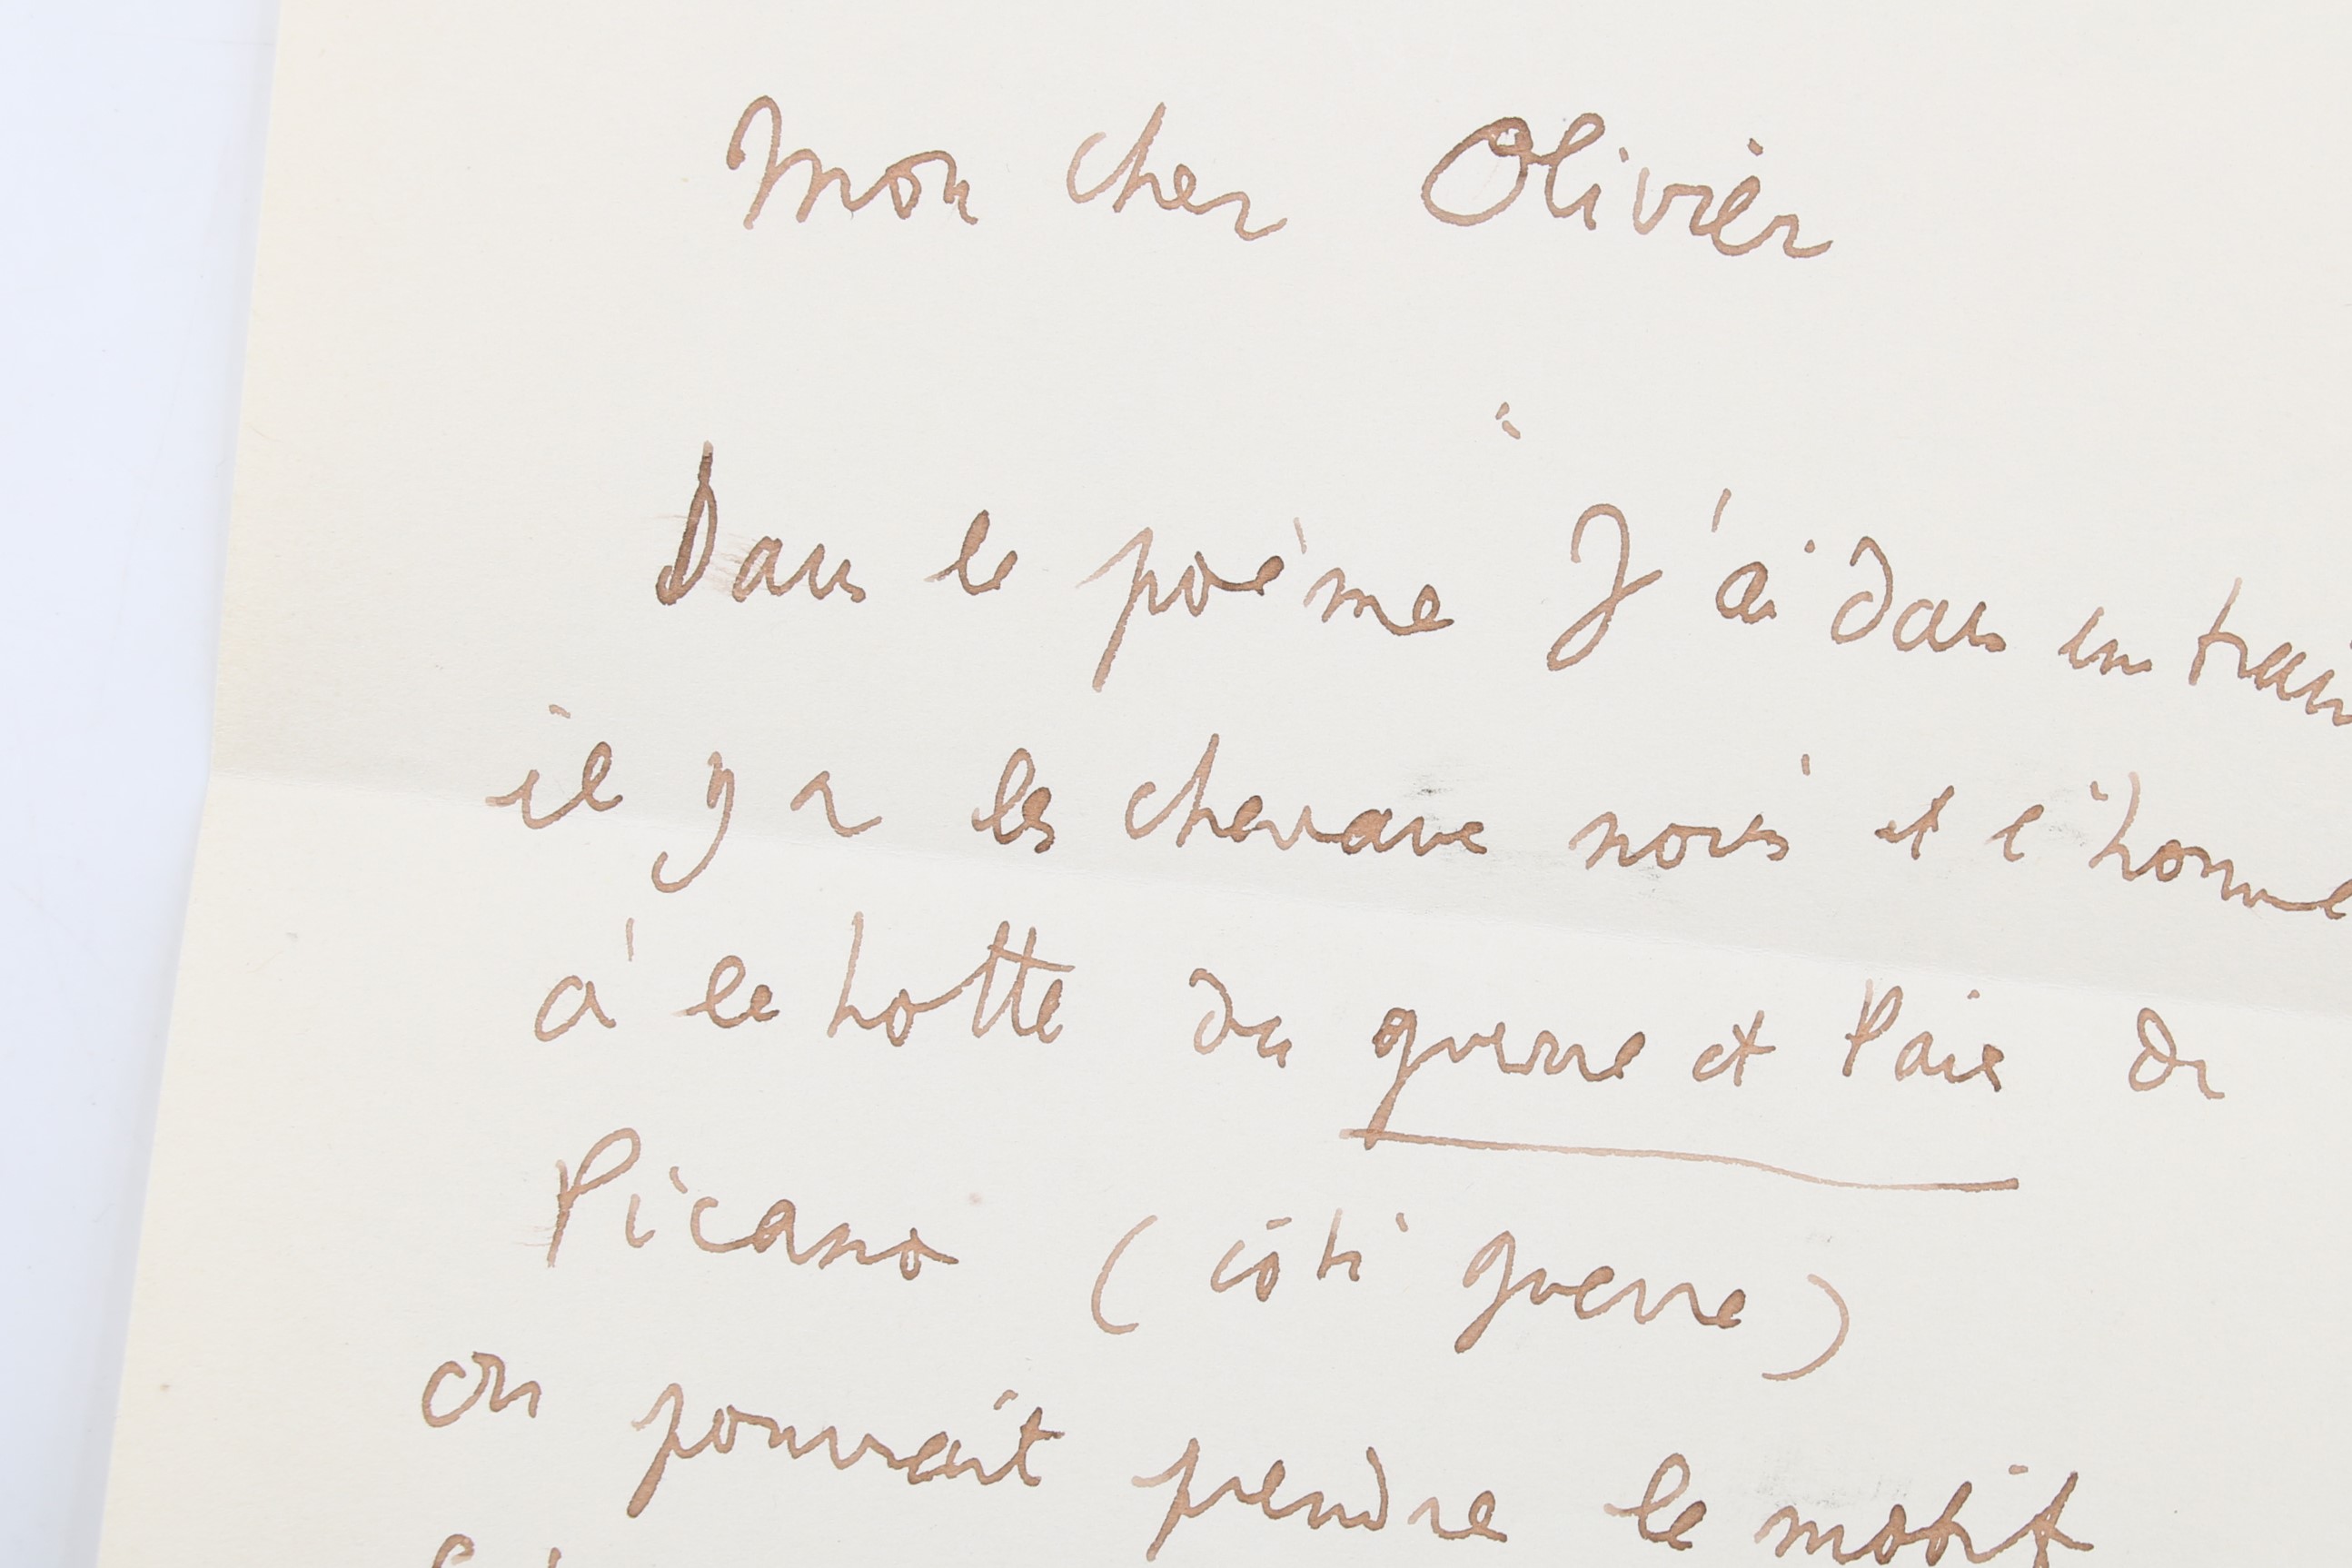 Mon cher Olivier
Dans le poème "J'ai dans un train
il y a les chevaux noirs et l'homme
à la hotte du guerre et Paix de
Picasso (côté guerre)
on pourrait prendre le motif